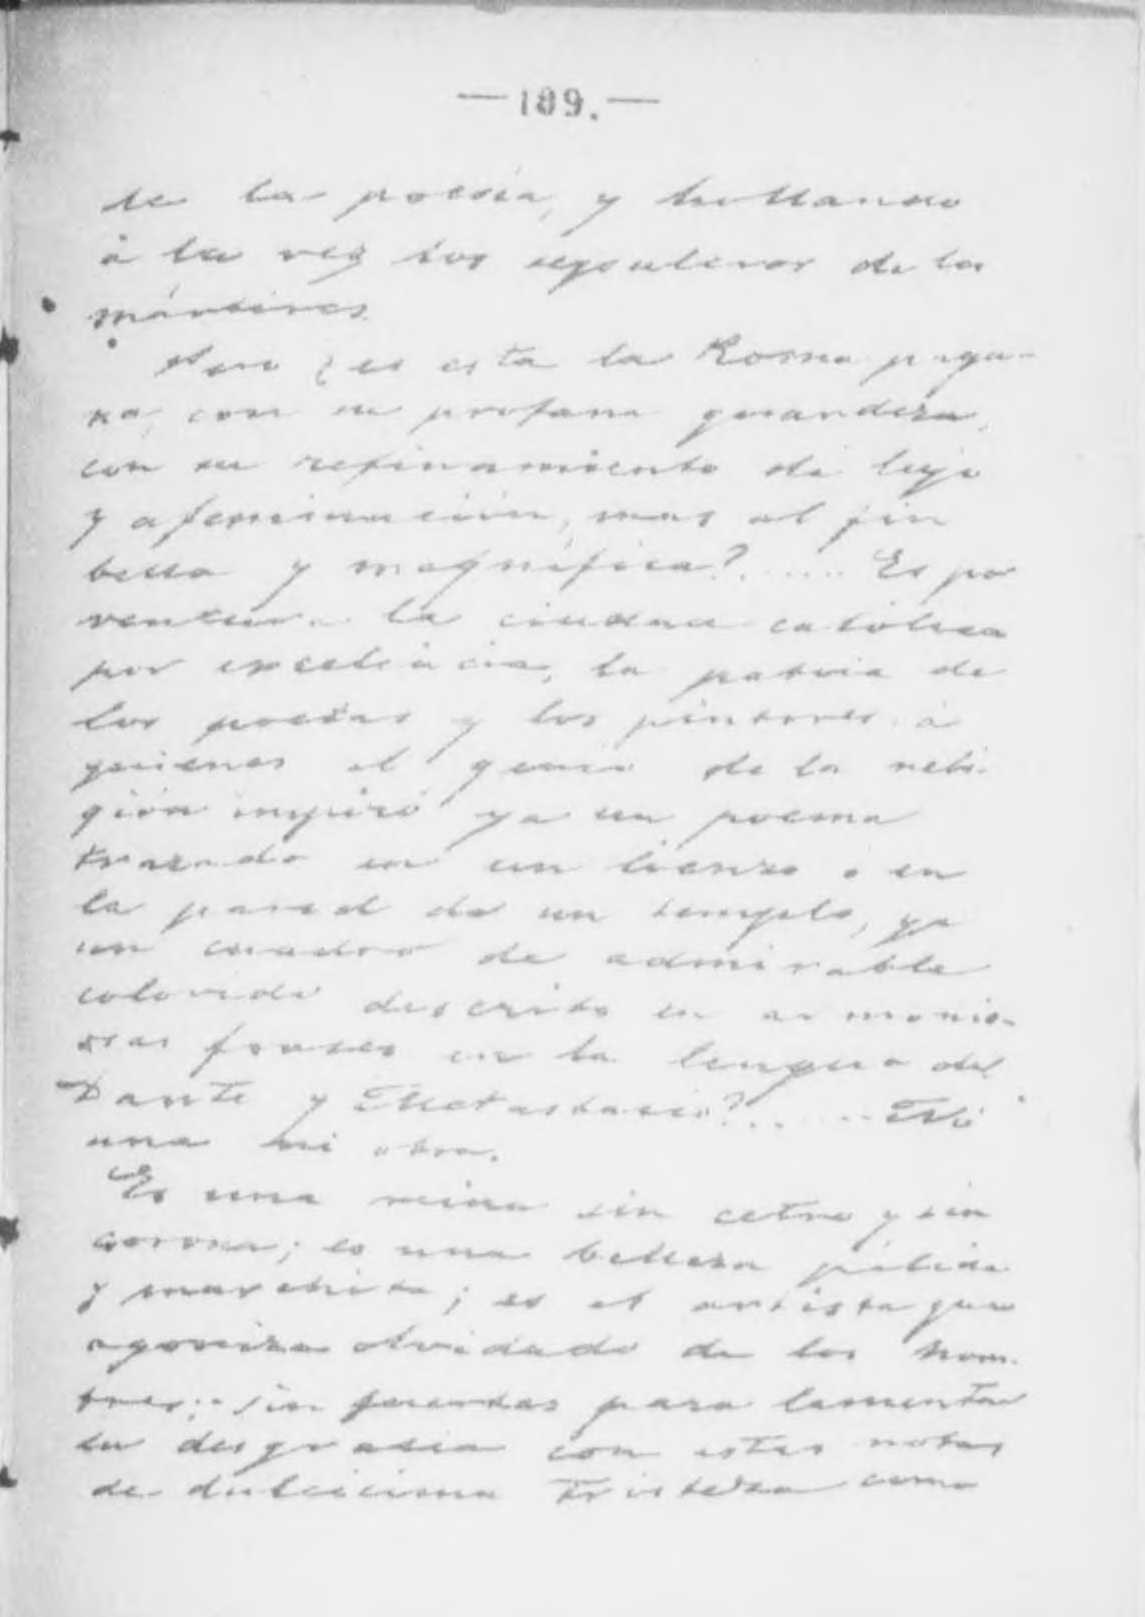 —189.—
de la poesía, y hollando
á la vez los sepulcros de los
mártires.
Pero ¿es esta la Roma paga-
na, con su profana grandeza,
con su refinamiento de lujo
y afeminación, mas al fin
bella y magnífica?...... Es por
ventura la ciudad católica
por excelencia, la patria de
los poetas y los pintores á
quienes el genio de la reli-
gión inspiró ya un poema
trazado en un lienzo o en
la pared de un templo, ya
un cuadro de admirable
colorido descrito en armonio-
sas frases en la lengua del
Dante y Metastasio?...... Ni
una ni otra.
Es una reina sin cetro y sin
corona; es una belleza pálida
y marchita; es el artista que
agoniza olvidado de los hom-
bres; sin fuerzas para lamentar
su desgracia con estas notas
de dulcicima tristeza como